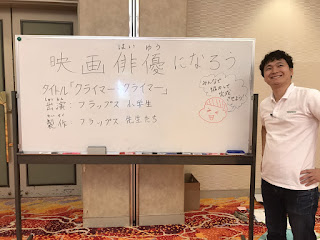 はい ゆう
映画俳優になろう
タイトル「クライマー・クライマー」
出演：フラップス 小学生
せいさく
製作：フラップス 先生たち
みんなで